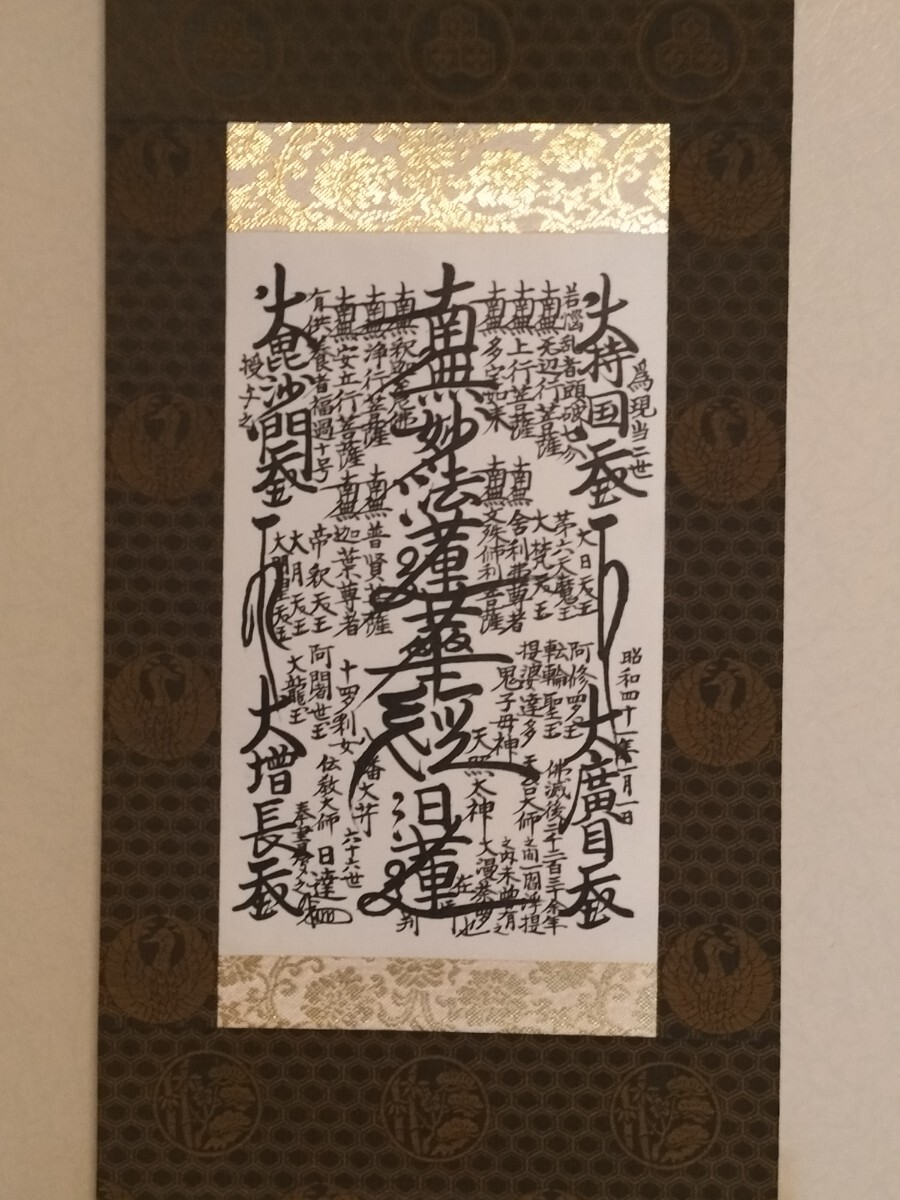 爲現当二世
昭和四十一年一月一日
大持国天王
大廣目天王
若悩乱者頭破七分
南無无辺行菩薩
南無上行菩薩
南無多宝如来
大日天王
第六天魔王
大梵天王
南無舎利弗尊者
南無文殊師利菩薩
阿修四王
転輪聖王
提婆達多
鬼子母神
天照大神
天台大師
佛滅後二千二百三十余年
之間一閻浮提
之内未曽有之
大漫荼羅也
南無妙法蓮華經
日蓮
在
判
南無釈迦牟尼佛
南無浄行菩薩
南無安立行菩薩
有供養者福過十号
南無普賢菩薩
南無迦葉尊者
帝釈天王
大月天王
大明星天王
十四刹女
阿闍世王
大龍王
八幡大菩薩
伝教大師
六十六世
日達
奉書写之
大毘沙門天王
授与之
大増長天王